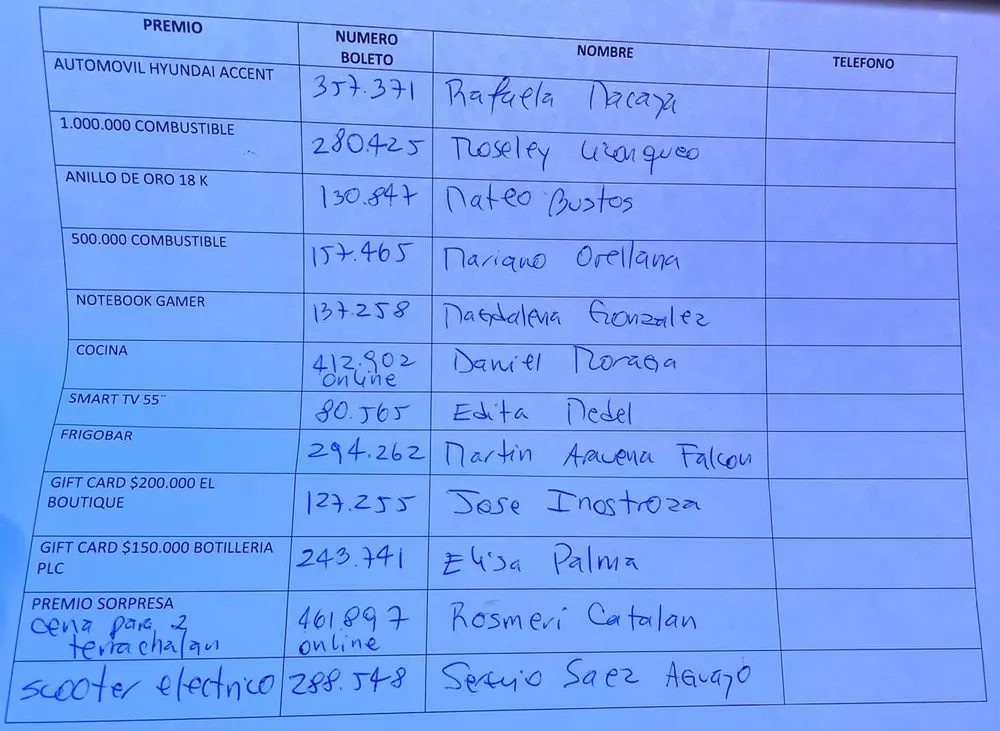 PREMIO NUMERO BOLETO NOMBRE TELEFONO
AUTOMOVIL HYUNDAI ACCENT 357.371 Rafaela Macaya
1.000.000 COMBUSTIBLE 280.425 Moseley
ANILLO DE ORO 18 K 130.847 Mateo Bustos
500.000 COMBUSTIBLE 157.465 Mariano Orellana
NOTEBOOK GAMER 137.258 Magdalena Gonzalez
COCINA 412.902 online Daniel Moraga
SMART TV 55¨ 80.565 Edita Medel
FRIGOBAR 294.262 Martin Aravena Falcon
GIFT CARD $200.000 EL BOUTIQUE 127.255 Jose Inostroza
GIFT CARD $150.000 BOTILLERIA PLC 243.741 Elisa Palma
PREMIO SORPRESA cena para 2 terrachalan 461.897 online Rosmeri Catalan
scooter electrico 288.548 Sergio Saez Aguayo